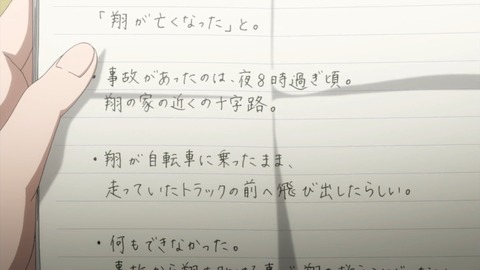 「翔が亡くなった」と。
・事故があったのは、夜8時過ぎ頃。
翔の家の近くの十字路。
・翔が自転車に乗ったまま、
走っていたトラックの前へ飛び出したらしい。
・何もできなかった。
事故から翔を